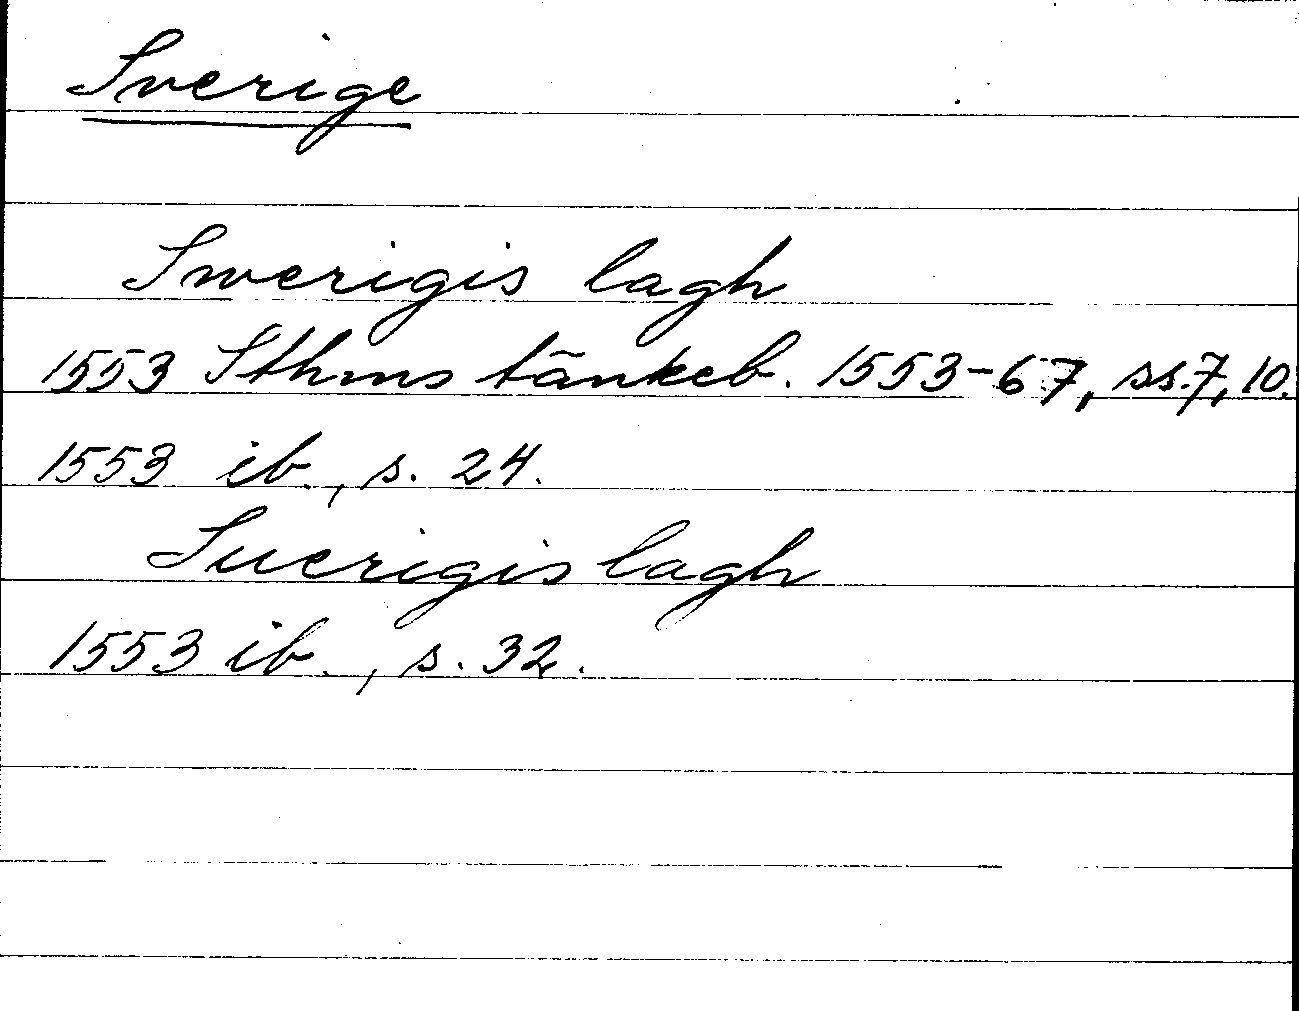 Sverige
Swerigis lagh
1553 Sthms tänkeb. 1553-67, ss. 7, 10.
1553 ib., s. 24.
Suerigis lagh
1553 ib., s. 32.